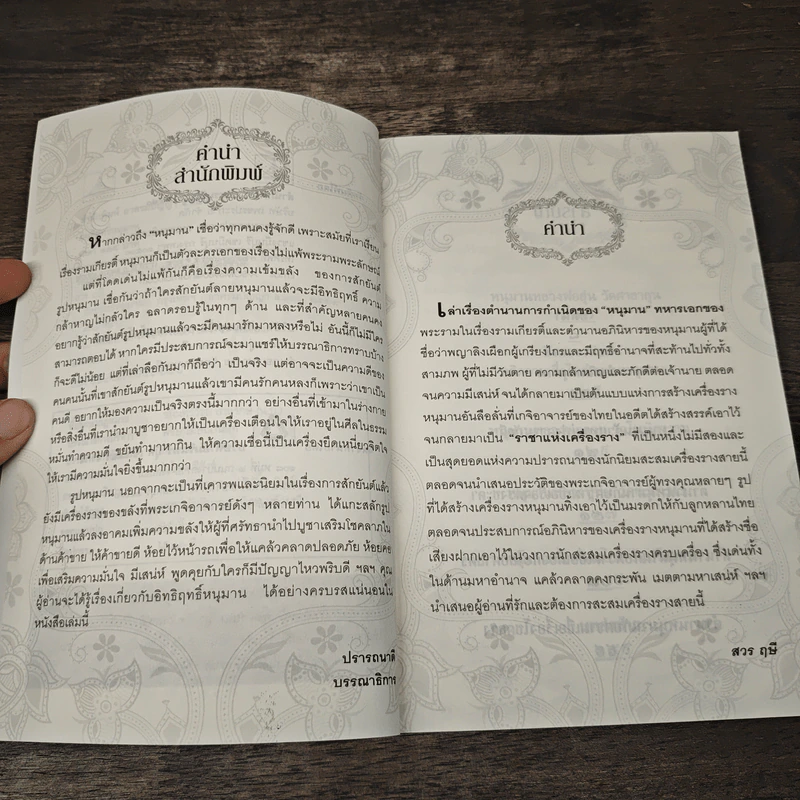 คำนำ
สำนักพิมพ์
หากกล่าวถึง "หนุมาน" เชื่อว่าทุกคนคงรู้จักดี เพราะสมัยที่เราเรียน
เรื่องรามเกียรติ์ หนุมานก็เป็นตัวละครเอกของเรื่องไม่แพ้พระรามพระลักษณ์
แต่ที่โดดเด่นไม่แพ้กันก็คือเรื่องความเข้มขลัง ของการสักยันต์
รูปหนุมาน เชื่อกันว่าถ้าใครสักยันต์ลายหนุมานแล้วจะมีอิทธิฤทธิ์ ความ
กล้าหาญไม่กลัวใคร ฉลาดรอบรู้ในทุกๆ ด้าน และที่สำคัญหลายคนคง
อยากรู้ว่าสักยันต์รูปหนุมานแล้วจะมีคนมารักมาหลงหรือไม่ อันนี้ก็ไม่มีใคร
สามารถตอบได้ หากใครมีประสบการณ์จะมาแชร์ให้บรรณาธิการทราบบ้าง
ก็จะดีไม่น้อย แต่ที่เล่าลือกันมาก็ถือว่า เป็นจริง แต่อาจจะเป็นความดีของ
คนคนนั้นที่เขาสักยันต์รูปหนุมานแล้วเขามีคนรักคนหลงก็เพราะว่าเขาเป็น
คนดี อยากให้มองความเป็นจริงตรงนี้มากกว่า อย่างอื่นที่เข้ามาในร่างกาย
หรือสิ่งอื่นที่เรานำมาบูชาอยากให้เป็นเครื่องเตือนใจให้เราอยู่ในศีลในธรรม
หมั่นทำความดี ขยันทำมาหากิน ให้ความเชื่อนี้เป็นเครื่องยึดเหนี่ยวจิตใจ
ให้เรามีความมั่นใจยิ่งขึ้นมากกว่า
รูปหนุมาน นอกจากจะเป็นที่เคารพและนิยมในเรื่องการสักยันต์แล้ว
ยังมีเครื่องรางของขลังที่พระเกจิอาจารย์ดังๆ หลายท่าน ได้แกะสลักรูป
หนุมานแล้วลงอาคมเพิ่มความขลังให้ผู้ที่ศรัทธานำไปบูชาเสริมโชคลาภใน
ด้านค้าขาย ให้ค้าขายดี ห้อยไว้หน้ารถเพื่อให้แคล้วคลาดปลอดภัย ห้อยคอ
เพื่อเสริมความมั่นใจ มีเสน่ห์ พูดคุยกับใครก็มีปัญญาไหวพริบดี ฯลฯ คุณ
ผู้อ่านจะได้รู้เรื่องเกี่ยวกับอิทธิฤทธิ์หนุมาน ได้อย่างครบรสแน่นอนใน
หนังสือเล่มนี้
ปรารถนาดี
บรรณาธิการ
คำนำ
เล่าเรื่องตำนานการกำเนิดของ "หนุมาน" ทหารเอกของ
พระรามในเรื่องรามเกียรติ์และตำนานอภินิหารของหนุมานผู้ที่ได้
ชื่อว่าพญาลิงเผือกผู้เกรียงไกรและมีฤทธิ์อำนาจที่สะท้านไปทั่วทั้ง
สามภพ ผู้ที่ไม่มีวันตาย ความกล้าหาญและภักดีต่อเจ้านาย ตลอด
จนความมีเสน่ห์ จนได้กลายมาเป็นต้นแบบแห่งการสร้างเครื่องราง
หนุมานอันลือลั่นที่เกจิอาจารย์ของไทยในอดีตได้สร้างสรรค์เอาไว้
จนกลายมาเป็น "ราชาแห่งเครื่องราง" ที่เป็นหนึ่งไม่มีสองและ
เป็นสุดยอดแห่งความปรารถนาของนักนิยมสะสมเครื่องรางสายนี้
ตลอดจนนำเสนอประวัติของพระเกจิอาจารย์ผู้ทรงคุณหลายๆ รูป
ที่ได้สร้างเครื่องรางหนุมานทิ้งเอาไว้เป็นมรดกให้กับลูกหลานไทย
ตลอดจนประสบการณ์อภินิหารของเครื่องรางหนุมานที่ได้สร้างชื่อ
เสียงฝากเอาไว้ในวงการนักสะสมเครื่องรางครบเครื่อง ซึ่งเด่นทั้ง
ในด้านมหาอำนาจ แคล้วคลาดคงกระพัน เมตตามหาเสน่ห์ ฯลฯ
นำเสนอผู้อ่านที่รักและต้องการสะสมเครื่องรางสายนี้
สวร ฤษี